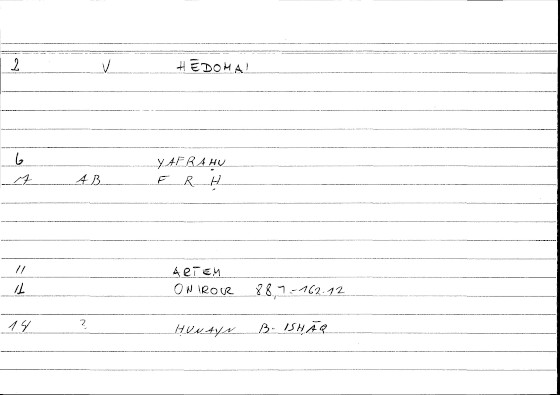 2 V HĒDOMAI
6 YAFRAḤU
A AB F R Ḥ
11 ARTEM
12 ONIROCR 88,7-162.12
14 ? ḤUNAYN B. ISḤĀQ